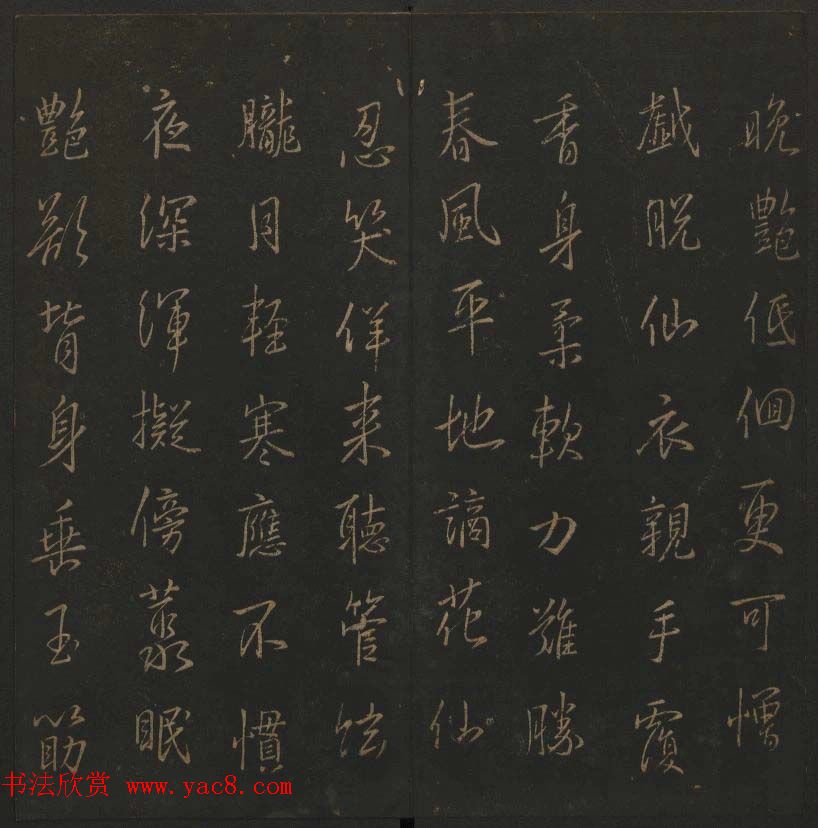 晚艷低徊更可憎
戲脫仙衣親手覆
香身柔軟力難勝
春風平地謫花仙
忍笑佯来聽管弦
朧月軽寒應不慣
夜深渾擬傍叢眠
艷歌背身垂玉筯
书法欣赏 www.yac8.com